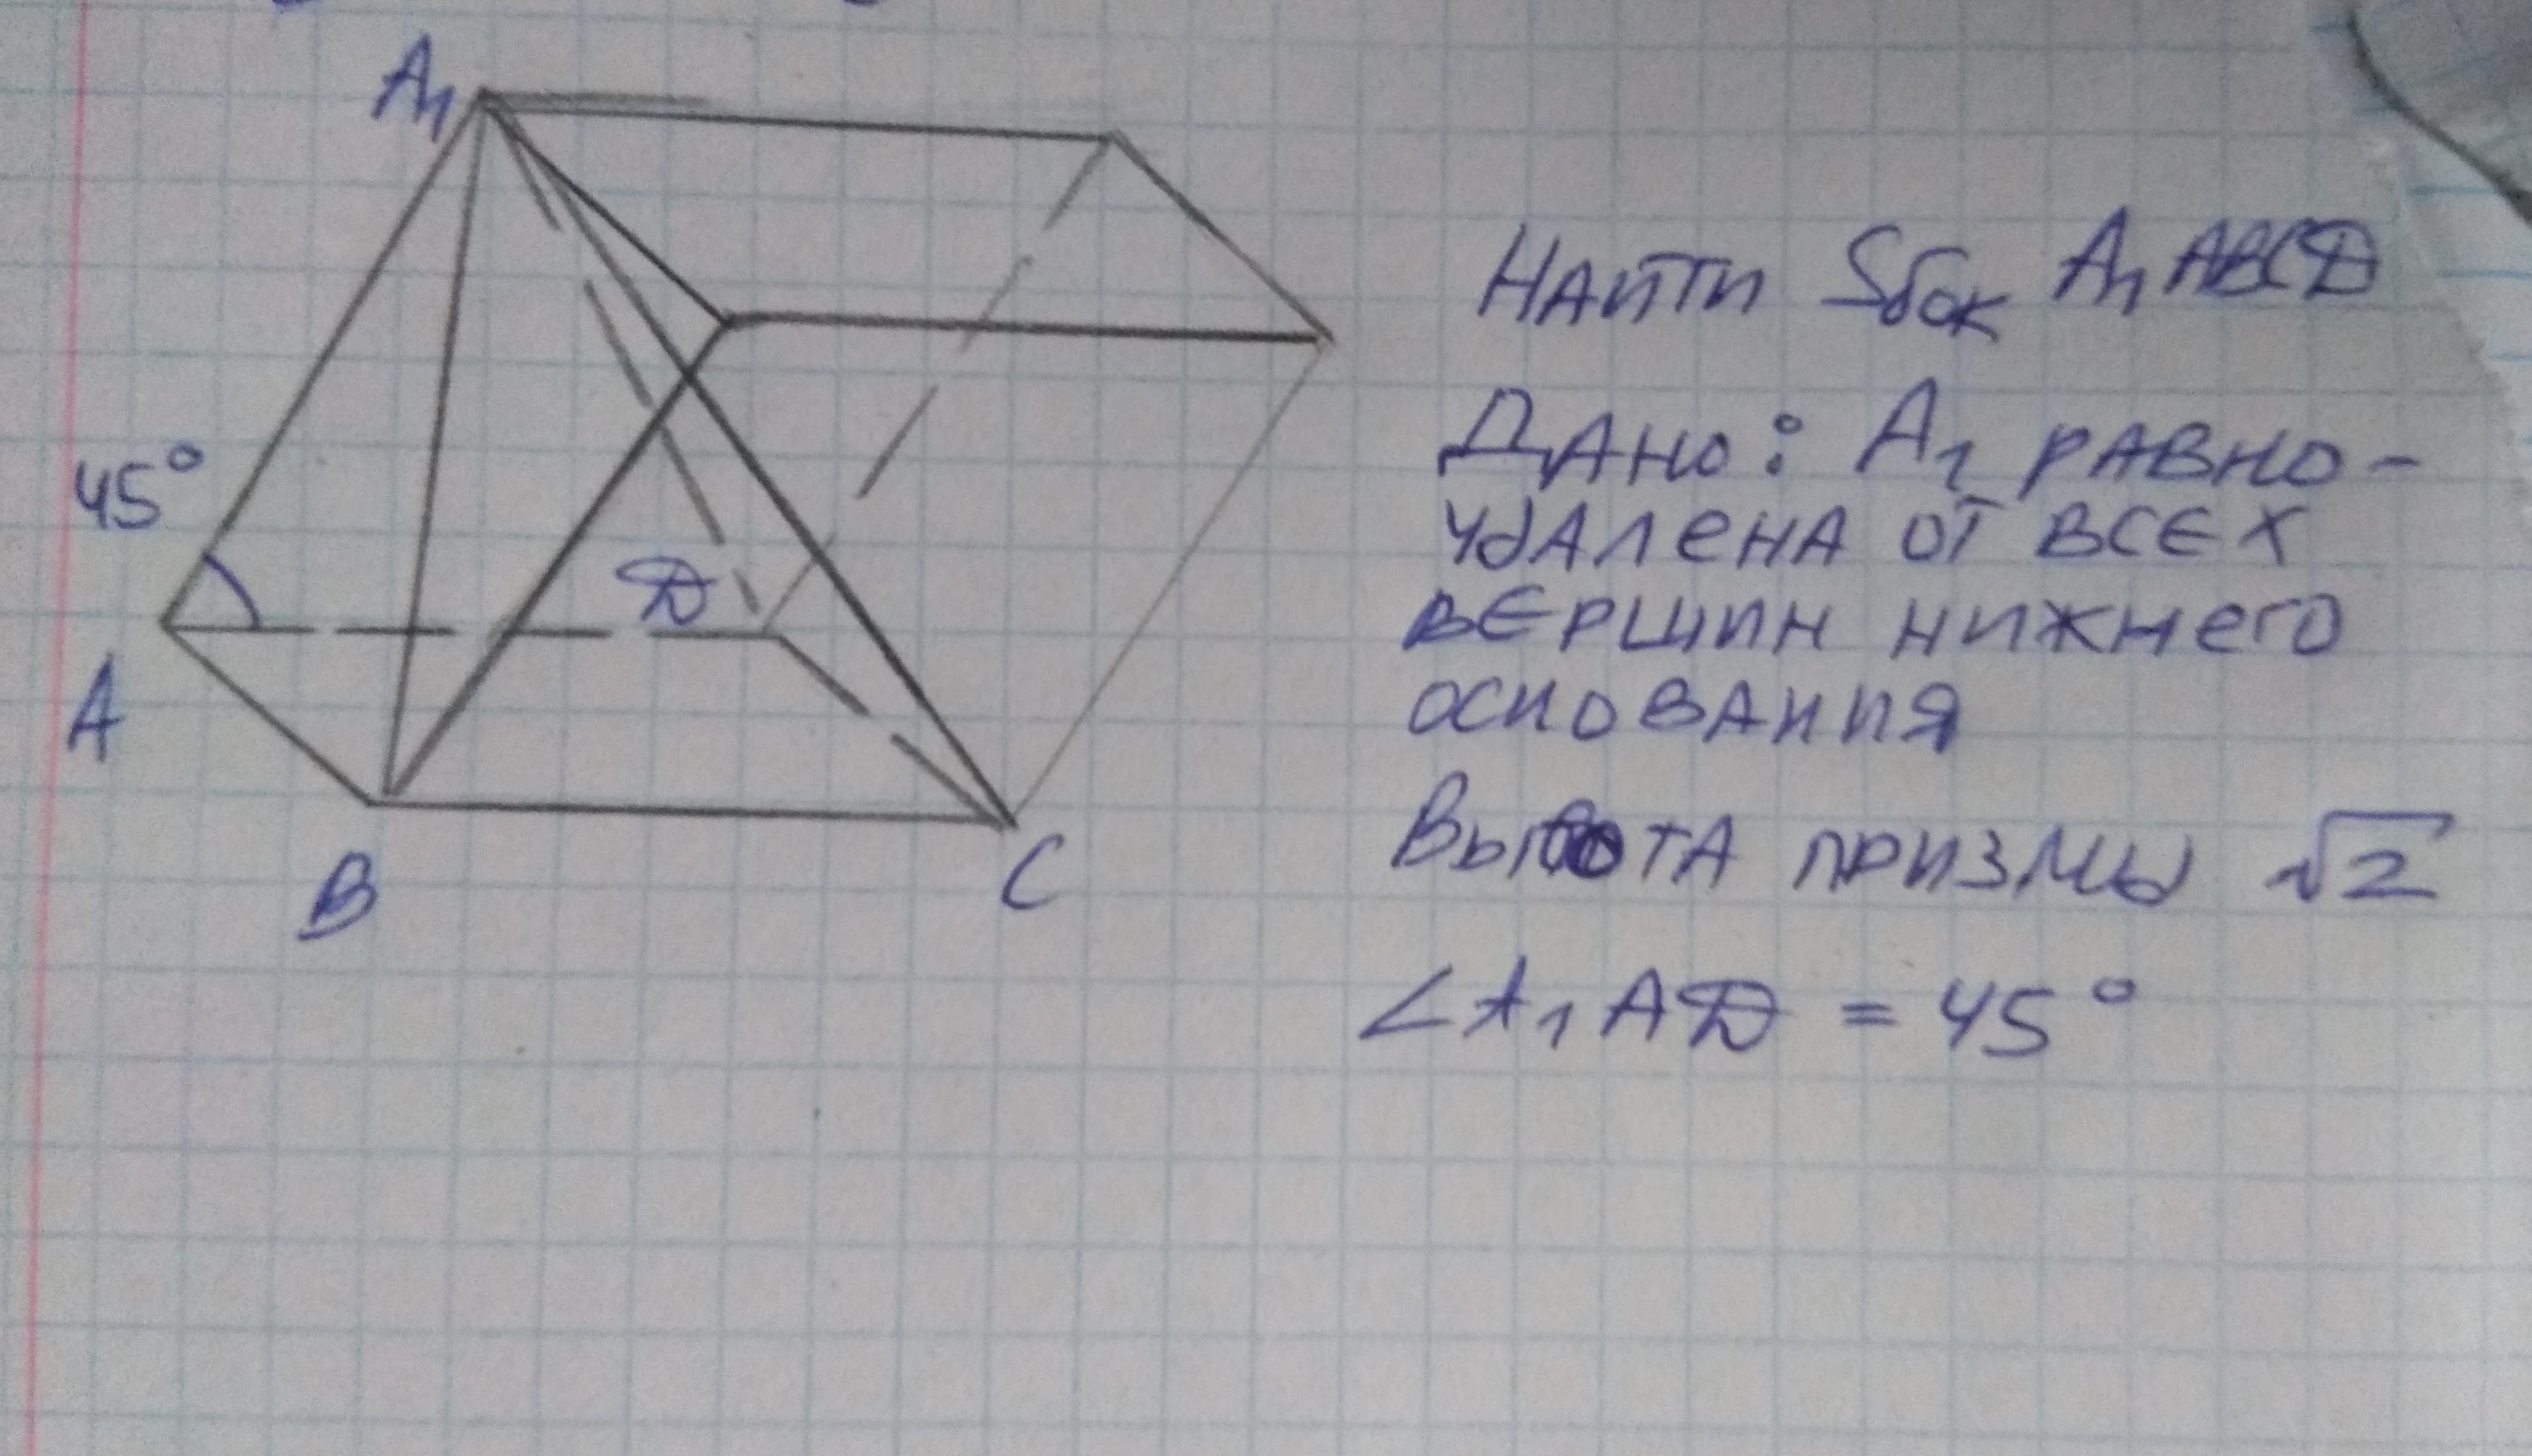 A₁
45°
D
A
B
C
Найти Sбок A₁ABCD
Дано: A₁ равно-
удалена от всех
вершин нижнего
основания
Высота призмы √2
∠A₁AD = 45°